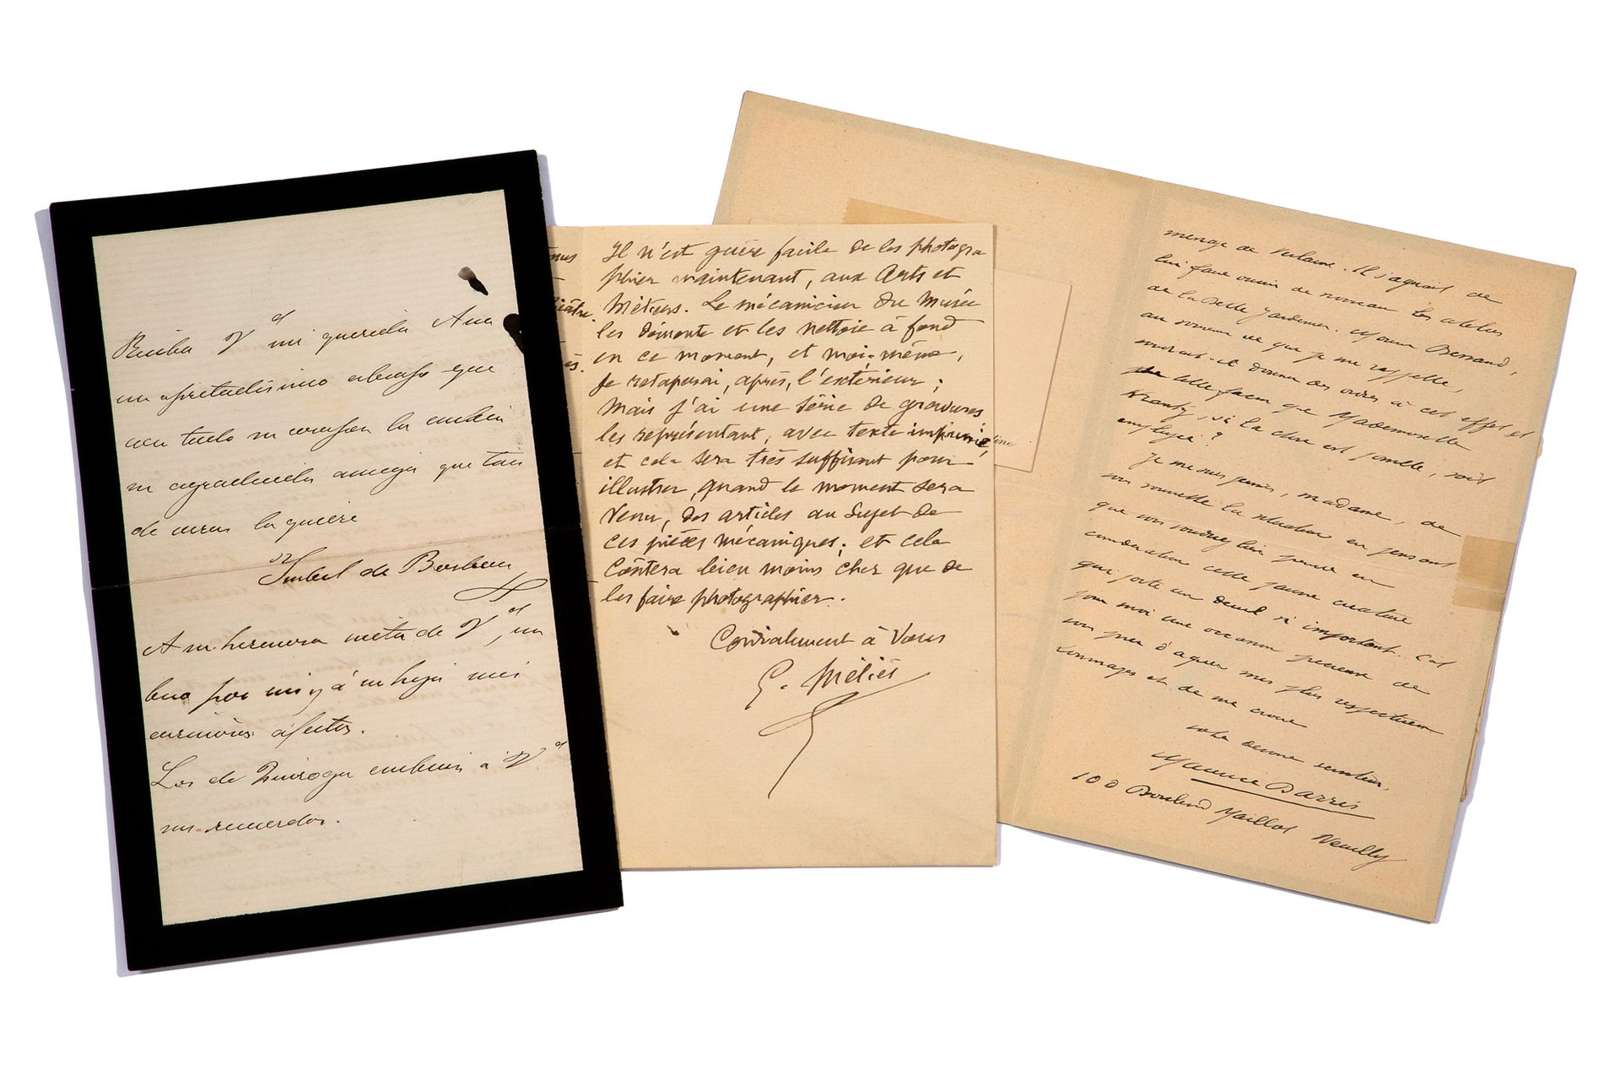 Reciba Vd mi querida Ana
un apretadísimo abrazo que
con todo mi corazon la embia
su agradecida amiga que tan
de veras la quiere
Isabel de Borbon
A su hermosa nieta de Vd, un
beso por mi y á su hija mis
cariñosos afectos.
Los de Quiroga embian á Vd
sus recuerdos.
Il n'est guère facile de les photogra
phier maintenant, aux Arts et
Métiers. Le mécanicien du Musée
les démonte et les nettoie à fond
en ce moment, et moi-même,
je retaperai, après, l'extérieur;
mais j'ai une série de gravures
les représentant, avec texte imprimé,
et cela sera très suffisant pour
illustrer, quand le moment sera
venu, des articles au sujet de
ces pièces mécaniques; et cela
coûtera bien moins cher que de
les faire photographier.
Cordialement à Vous
G. Méliès
de Verlaine. Il s'agirait de
lui faire ouvrir de nouveau les ateliers
de la Belle Jardinière. Bessand,
au ce que je me rappelle,
donner des ordres à cet effet et
telle façon que Mademoiselle
si la chose est possible, soit
employée?
Je me suis permis, madame, de
que vous voudrez bien prendre en
considération cette jeune
que porte un deuil si important. C'est
pour moi une occasion précieuse de
vous prier d'agréer mes plus respectueux
hommages et de me croire
votre dévoué serviteur,
Maurice Barrès
100 Boulevard Maillot Neuilly